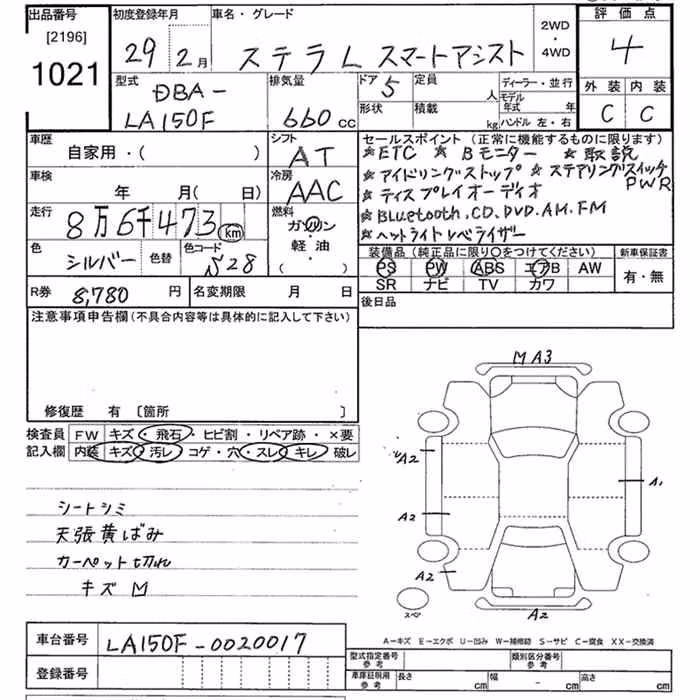 出品番号
[2196]
1021
初度登録年月
29 2月
車名・グレード
ステラ L スマートアシスト
2WD
・
4WD
評価点
4
外装 内装
C C
型式
DBA-
LA150F
排気量
660 cc
ドア 5
定員 人
形状
積載 kg
ディーラー・並行
モデル年式 年
ハンドル 左・右
車歴
自家用・( )
シフト
AT
車検
年 月( 日)
冷房
AAC
走行
8万6千473 km
燃料
ガソリン
軽油
( )
色
シルバー
色替
色コード
S28
セールスポイント (正常に機能するものに限ります)
★ETC ★Bモニター ★取説
★アイドリングストップ ★ステアリングスイッチ
★ディスプレイオーディオ PWR
★Bluetooth.CD.DVD.AM.FM
★ヘットライトレベライザー
装備品 (純正品に限り○をつけてください)
PS PW ABS エアB AW
SR ナビ TV カワ
新車保証書
有・無
R券 8,780 円
名変期限 月 日
後日品
注意事項申告欄 (不具合内容等は具体的に記入して下さい)
修復歴 有 [箇所 ]
検査員
記入欄
FW キズ・飛石・ヒビ割・リペア跡・×要
内装 キズ・汚レ・コゲ・穴・スレ・キレ・破レ
シートシミ
天張黄ばみ
カーペット切れ
キズ M
M A3
A2
A2
A2
A1
A2
スペア
A−キズ E−エクボ U−凹み W−補修跡 S−サビ C−腐食 XX−交換済
車台番号 LA150F-0020017
登録番号
型式指定番号
参考
類別区分番号
参考
車庫証明用
参考
長さ cm
幅 - cm
高さ cm